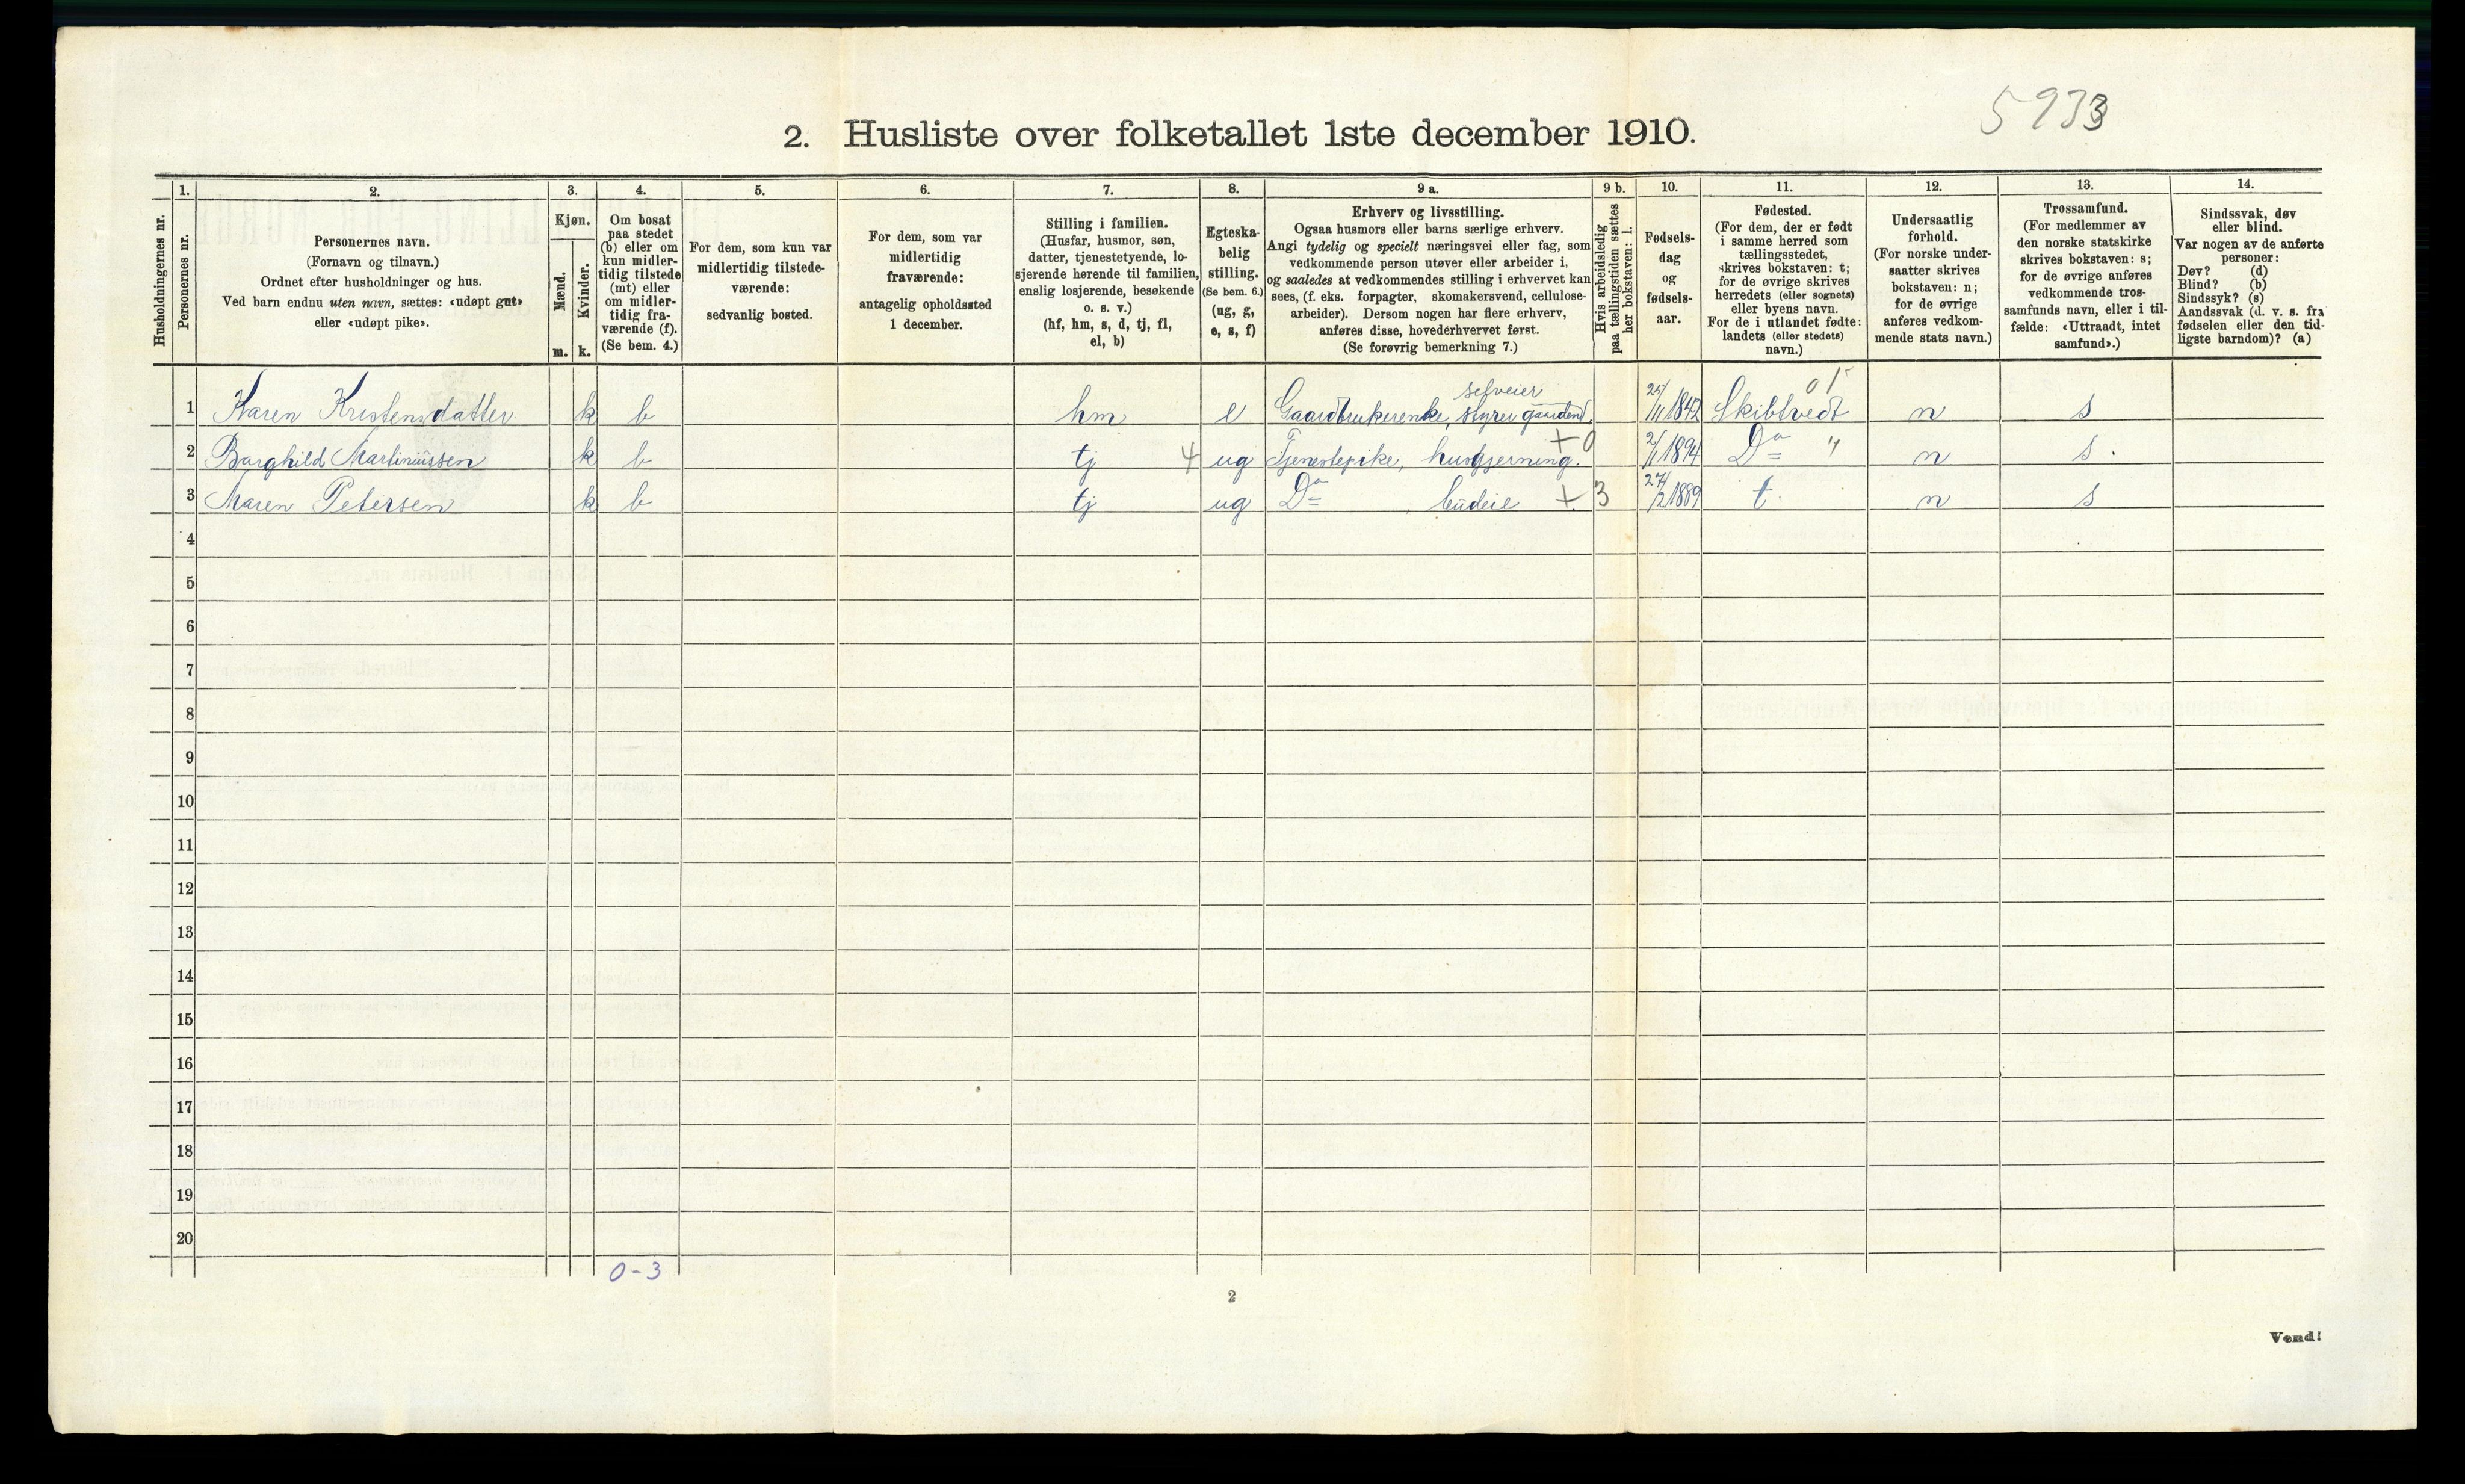 5933
2. Husliste over folketallet 1ste december 1910.
Husholdningernes nr.
1.
Personernes nr.
2.
Personernes navn.
(Fornavn og tilnavn.)
Ordnet efter husholdninger og hus.
Ved barn endnu uten navn, sættes: «udøpt gut»
eller «udøpt pike».
3.
Kjøn.
Mænd.
Kvinder.
m. k.
4.
Om bosat
paa stedet
(b) eller om
kun midler-
tidig tilstede
(mt) eller
om midler-
tidig fra-
værende (f).
(Se bem. 4.)
5.
For dem, som kun var
midlertidig tilstede-
værende:
sedvanlig bosted.
6.
For dem, som var
midlertidig
fraværende:
antagelig opholdssted
1 december.
7.
Stilling i familien.
(Husfar, husmor, søn,
datter, tjenestetyende, lo-
sjerende hørende til familien,
enslig losjerende, besøkende
o. s. v.)
(hf, hm, s, d, tj, fl,
el, b)
8.
Egteska-
belig
stilling.
(Se bem. 6.)
(ug, g,
e, s, f)
9 a.
Erhverv og livsstilling.
Ogsaa husmors eller barns særlige erhverv.
Angi tydelig og specielt næringsvei eller fag, som
vedkommende person utøver eller arbeider i,
og saaledes at vedkommendes stilling i erhvervet kan
sees, (f. eks. forpagter, skomakersvend, cellulose-
arbeider). Dersom nogen har flere erhverv,
anføres disse, hovederhvervet først.
(Se forøvrig bemerkning 7.)
9 b.
Hvis arbeidsledig
paa tællingstiden sættes
her bokstaven: l.
10.
Fødsels-
dag
og
fødsels-
aar.
11.
Fødested.
(For dem, der er født
i samme herred som
tællingsstedet,
skrives bokstaven: t;
for de øvrige skrives
herredets (eller sognets)
eller byens navn.
For de i utlandet fødte:
landets (eller stedets)
navn.)
12.
Undersaatlig
forhold.
(For norske under-
saatter skrives
bokstaven: n;
for de øvrige
anføres vedkom-
mende stats navn.)
13.
Trossamfund.
(For medlemmer av
den norske statskirke
skrives bokstaven: s;
for de øvrige anføres
vedkommende tros-
samfunds navn, eller i til-
fælde: «Uttraadt, intet
samfund».)
14.
Sindssvak, døv
eller blind.
Var nogen av de anførte
personer:
Døv? (d)
Blind? (b)
Sindssyk? (s)
Aandssvak (d. v. s. fra
fødselen eller den tid-
ligste barndom)? (a)
selveier 01
1 Karen Kristensdatter k b hm e Gaardbrukerenke, styrer gaarden. 25/11 1842 Skibtvedt n s
2 Borghild Martiniussen k b tj 4 ug Tjenestepike, husgjerning. +0 2/1 1894 Do " n s.
3 Maren Petersen k b tj ug Do, budeie + 3 27/2 1889 t. n s
4
5
6
7
8
9
10
11
12
13
14
15
16
17
18
19
20
0-3
2
Vend!